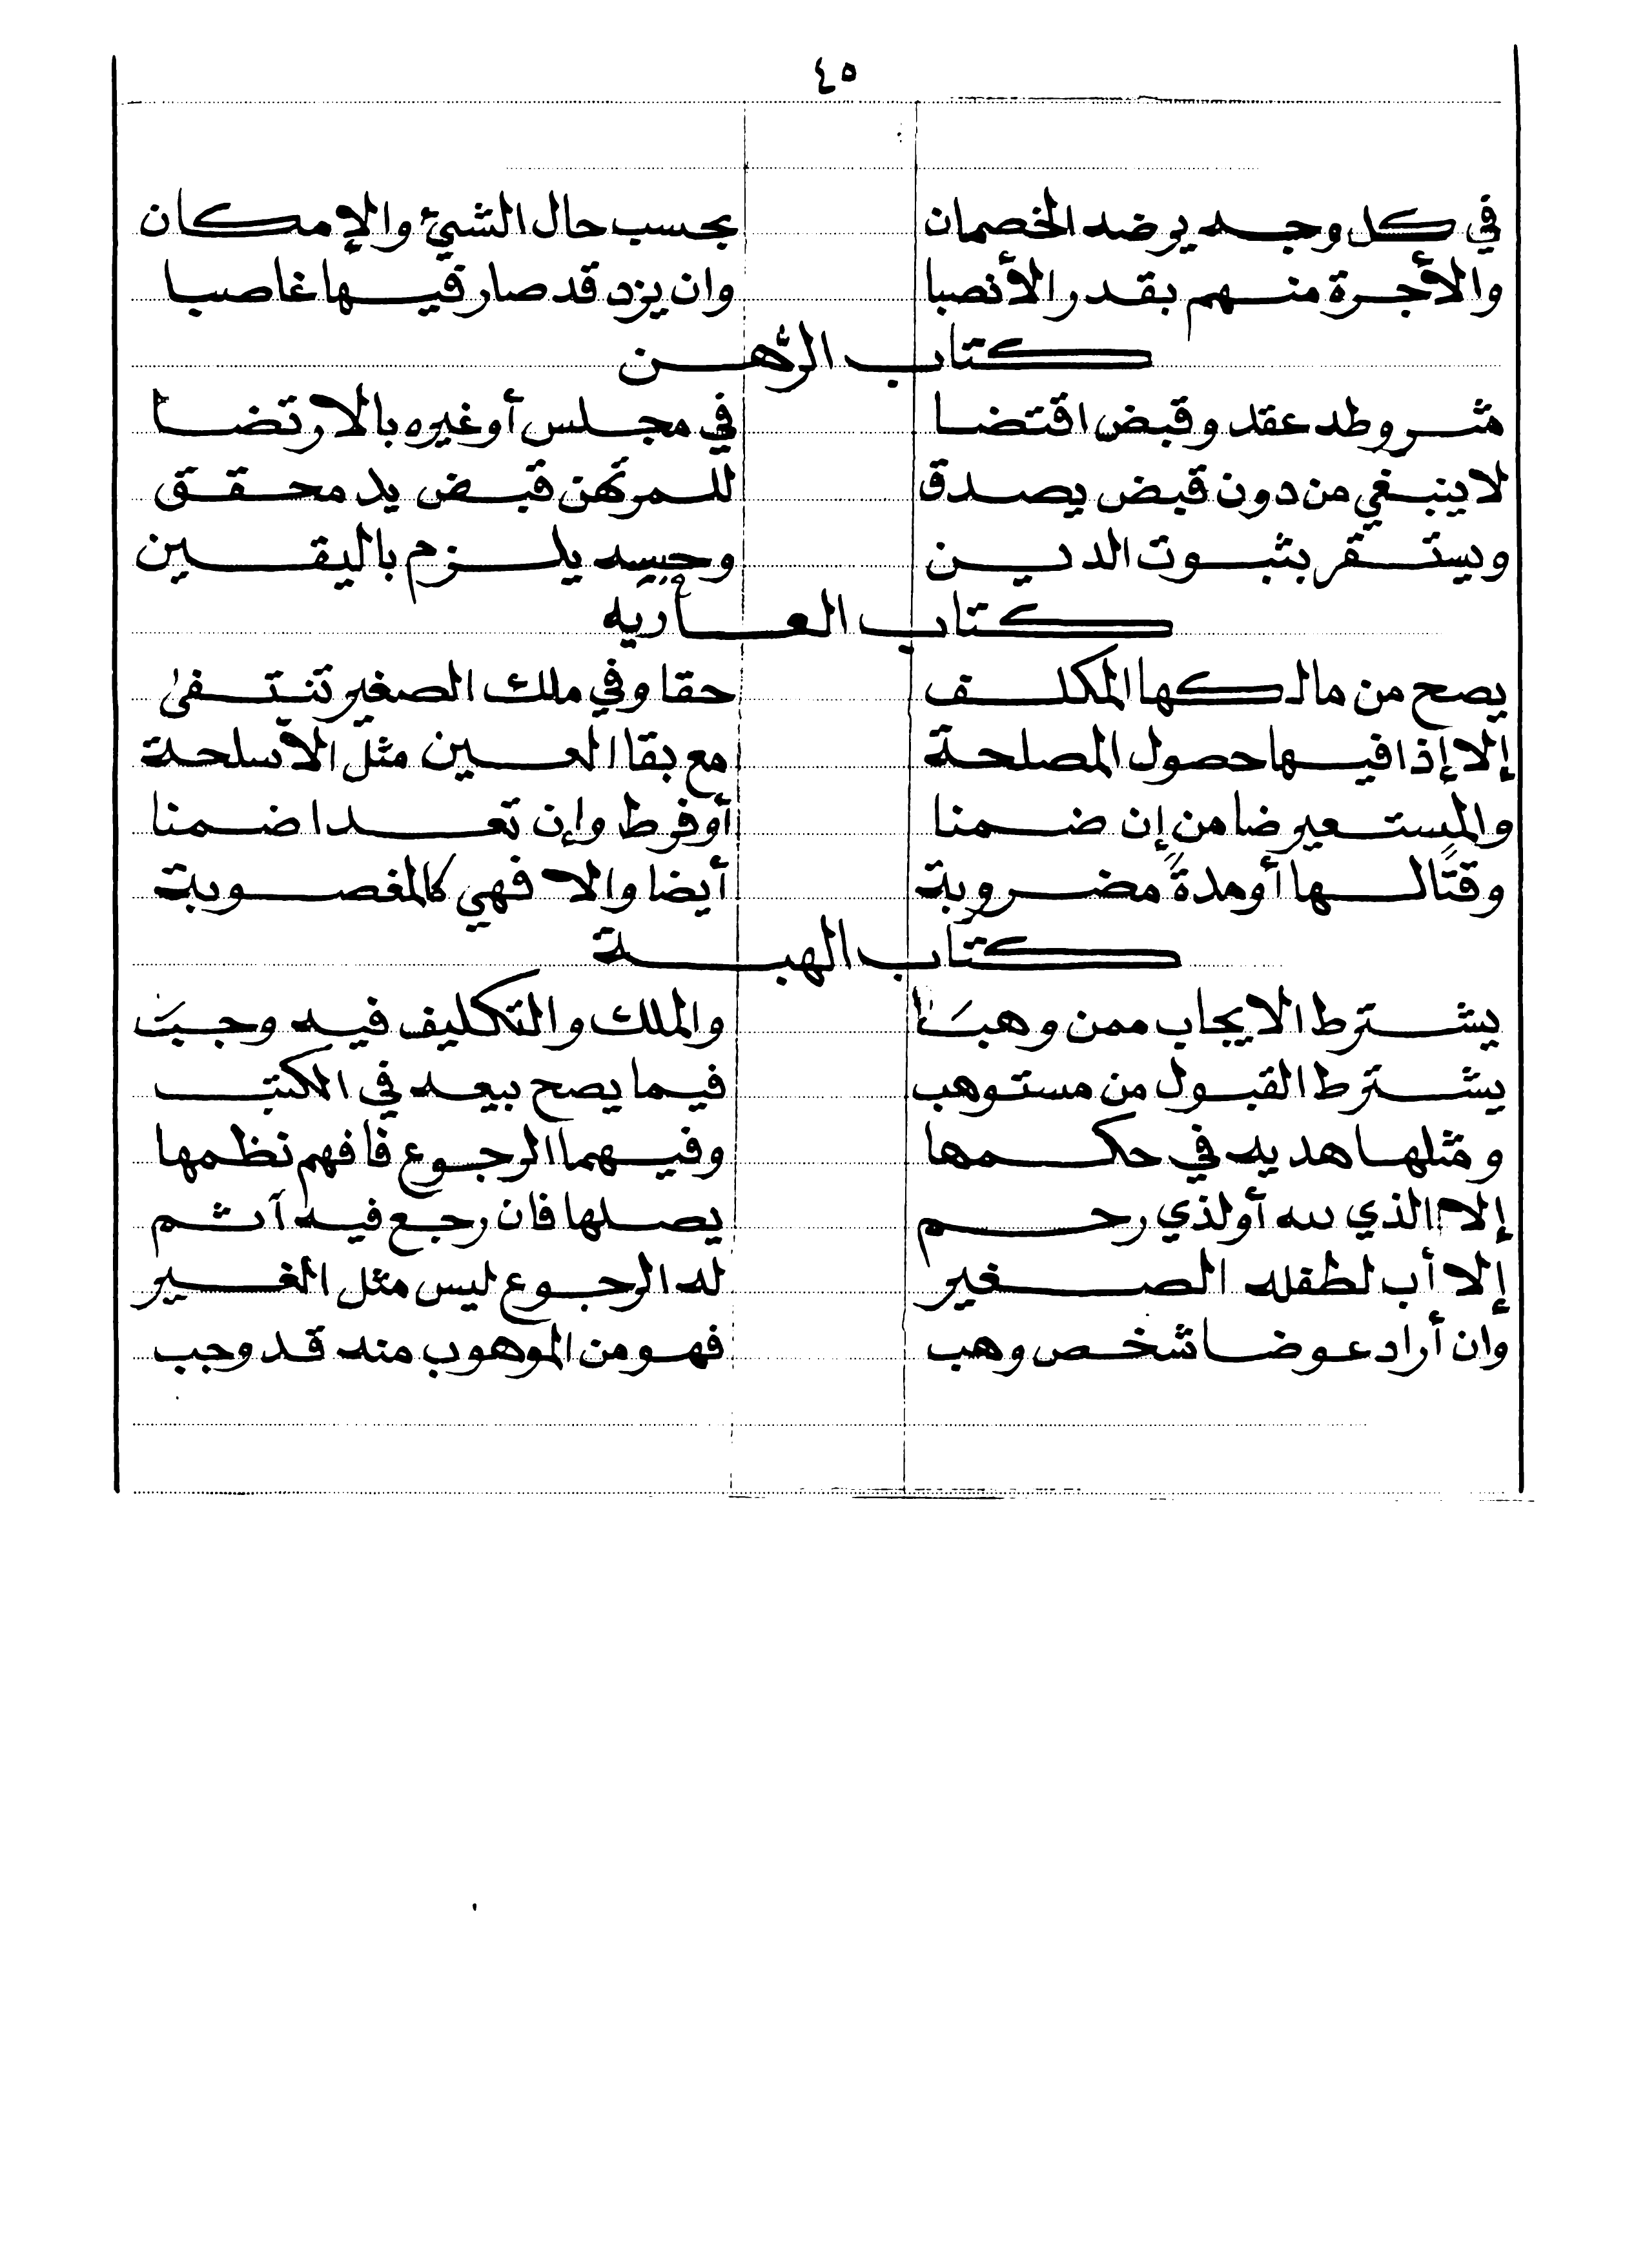 ٤٥
في كل وجه يرضه الخصمان بحسب حال الشيئ والإمكان
والأجرة منهم بقدر الأنصبا وان يزد قد صار فيها غاصبا
كتاب الرهن
شروطه عقد وقبض اقتضا في مجلس أو غيره بالارتضا
لا ينبغي من دون قبض يصدق للمرتهن قبض يد محقق
ويستقر بثبوت الدين وحبسه يلزم باليقين
كتاب العاريه
يصح من مالكها المكلف حقا وفي ملك الصغير تنتفى
إلا إذا فيها حصول المصلحة مع بقا العين مثل الأسلحة
والمستعير ضامن إن ضمنا أو فرط وإن تعدا ضمنا
وقتًا لها أو مدةً مضروبة أيضا والا فهي كالمغصوبة
كتاب الهبة
يشترط الايجاب ممن وهبَا والملك والتكليف فيه وجبَت
يشترط القبول من مستوهب فيما يصح بيعه في الكتب
ومثلها هديه في حكمها وفيهما الرجوع فافهم نظمها
إلا الذي لله أو لذي رحم يصلها فان رجع فيه آثم
إلا أب لطفله الصغير له الرجوع ليس مثل الغير
وان أراد عوضا شخص وهب فهو من الموهوب منه قد وجب